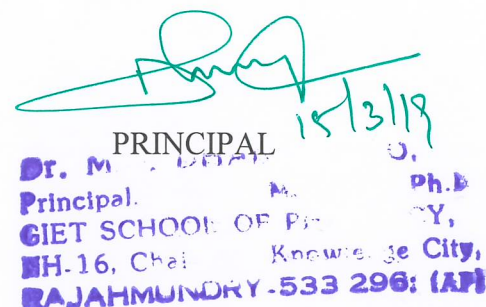 15/3/19
PRINCIPAL
Dr. M
Principal. M. Ph.D
GIET SCHOOL OF
NH-16, Knowledge City,
RAJAHMUNDRY-533 296: (AP)